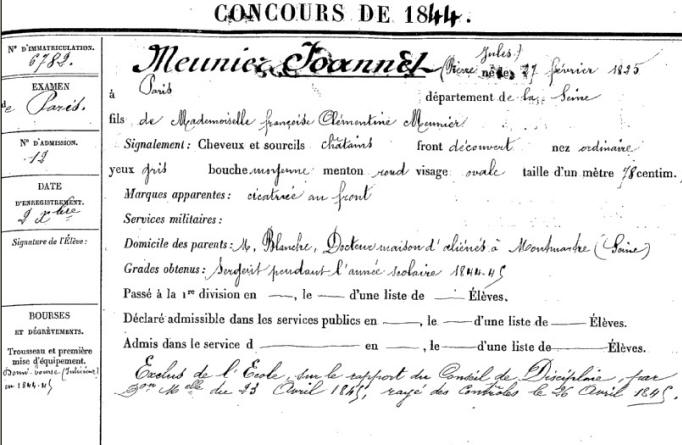 CONCOURS DE 1844.
N° D'IMMATRICULATION.
6782.
EXAMEN
de Paris.
N° D'ADMISSION.
12
DATE
D'ENREGISTREMENT.
2 Xbre
Signature de l'Élève:
BOURSES
ET DÉGRÈVEMENTS.
Trousseau et première
mise d'équipement.
en 1844-45
Meunier Joannet (Pierre Jules) né le 27 février 1825
à Paris département de la Seine
fils de Mademoiselle françoise Clémentine Meunier
Signalement: Cheveux et sourcils châtains front découvert nez ordinaire
yeux gris bouche moyenne menton rond visage ovale taille d'un mètre 78 centim.
Marques apparentes: cicatrice au front
Services militaires:
Domicile des parents: M. Blanche, Docteur maison d'aliénés à Montmartre (Seine)
Grades obtenus: Sergent pendant l'année scolaire 1844-45
Passé à la 1re division en —, le — d'une liste de — Élèves.
Déclaré admissible dans les services publics en —, le — d'une liste de — Élèves.
Admis dans le service d — en —, le — d'une liste de — Élèves.
Exclus de l'École, sur le rapport du Conseil de Discipline, par
Don Mlle du 23 Avril 1845, rayé des Contrôles le 26 Avril 1845.